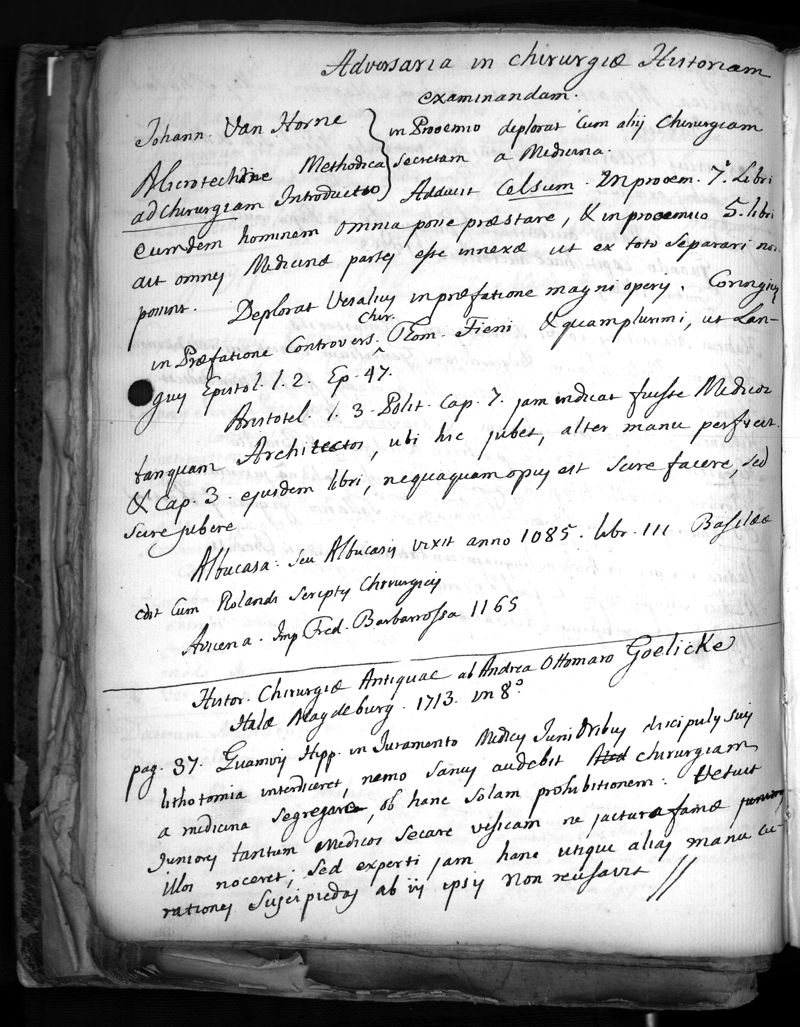 Adversaria in chirurgiæ Historiam
examinandam.
Johann. Van Horne } in Prooemio deplorat Cum alijs Chirurgiam
Microtechne Methodica secretam a Medicina.
ad Chirurgiam Introductio Adducit Celsum. In prooem. 7.i Libri
eumdem hominem omnia posse præstare, & in prooemio 5. libri
ait omnes Medicinæ partes esse innexæ ut ex toto separari non
possint. Deplorat Vesalius in præfatione magni operis. Coringius
in Præfatione Controvers. Chir. Thom. Fieni & quamplurimi, ut Lan-
gius Epistol. l. 2. Ep. 47.
Aristotel. l. 3. Polit. Cap. 7. jam indicat fuisse Medicos
tanquam Architectos, ubi hic jubet, alter manu perficit.
& Cap. 3. ejusdem libri, nequaquam opus est scire facere, sed
scire jubere
Albucasa: seu Albucasis vixit anno 1085. libr. III Basileæ
edit Cum Rolandi scriptis Chirurgicis
Avicena. Imp Fred. Barbarrossa 1165
Histor. Chirurgiæ Antiquae ab Andrea Ottomaro Goelicke
Halæ Magdeburg. 1713. in 8.o
pag. 37. Quamvis Hipp. in Juramento Medicis Junioribus discipulis suis
lithotomia interdiceret, nemo sanus audebit chirurgiam
a medicina segregare, ob hanc solam prohibitionem: Vetuit
Juniores tantum Medicos secare vesicam ne jactura famæ
illos noceret; sed experti jam hanc utique alias manu cu-
rationes suscipiedas ab iis ipsis non recusavit //